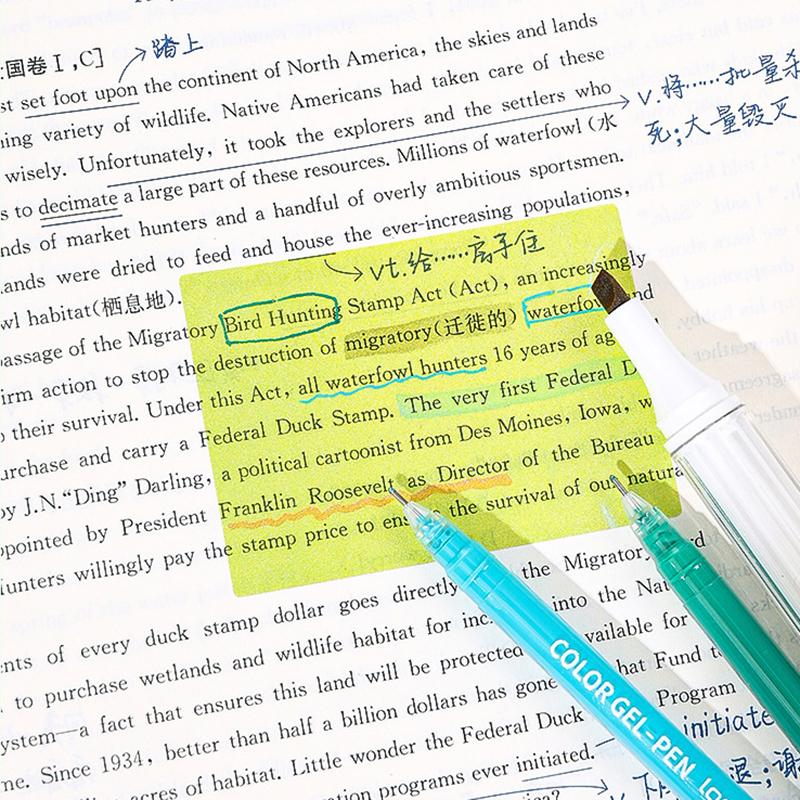 国卷Ⅰ,C]
踏上
set foot upon the continent of North America, the skies and lands
variety of wildlife. Native Americans had taken care of these
wisely. Unfortunately, it took the explorers and the settlers who
v.将……批量杀
死;大量毁灭
s to decimate a large part of these resources. Millions of waterfowl (水
nds of market hunters and a handful of overly ambitious sportsmen.
ands were dried to feed and house the ever-increasing populations,
wl habitat(栖息地).
vt.给……房子住
assage of the Migratory Bird Hunting Stamp Act (Act), an increasingly
irm action to stop the destruction of migratory(迁徙的) waterfow nd
their survival. Under this Act, all waterfowl hunters 16 years of ag
urchase and carry a Federal Duck Stamp. The very first Federal D
by J.N.“Ding” Darling, a political cartoonist from Des Moines, Iowa, w
ppointed by President Franklin Roosevelt as Director of the Bureau
unters willingly pay the stamp price to ens the survival of our natura
nts of every duck stamp dollar goes directly the Migratory rd
to purchase wetlands and wildlife habitat for inc into the Nat
ystem—a fact that ensures this land will be protected vailable for
me. Since 1934, better than half a billion dollars has gone hat Fund to
acres of habitat. Little wonder the Federal Duck Program
ation programs ever initiated.
initiate
退;谢
COLOR GEL-PEN